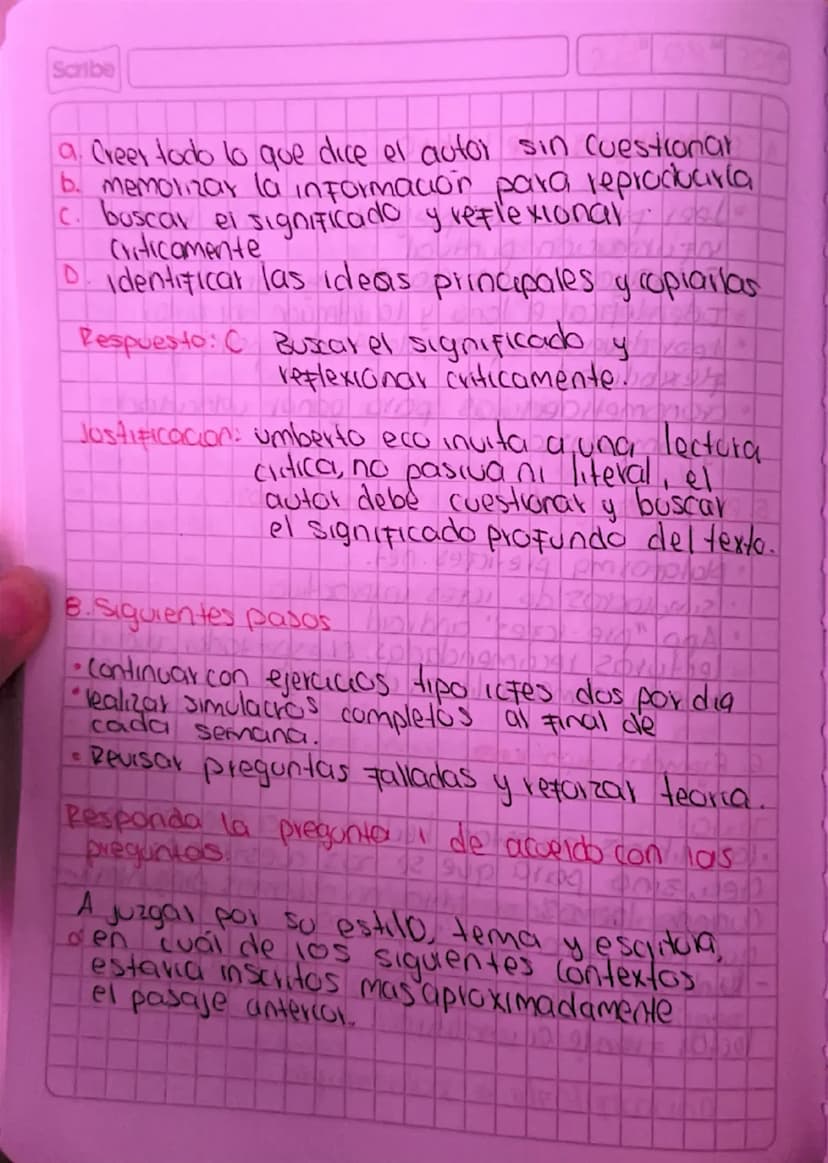 Scribe
a. Creer todo lo que dice el autor sin cuestionar
b. memorizar la información para reproducirla
c. buscar el significado y reflexionar
criticamente
D. identificar las ideas principales y copiarlas
Respuesto: C Buscar el significado y
reflexionar criticamente.
Justificacion: umberto eco invita a una lectura
critica, no pasiva ni literal, el
autor debe cuestionar y buscar
el significado profundo del texto.
B. Siguientes pasos
• continuar con ejercicios tipo icfes dos por dia
• realizar simulacros completos al final de
cada semana.
• Revisar preguntas falladas y reforzar teoria.
Responda la pregunta 1 de acuerdo con las
preguntas.
A juzgar por su estilo, tema y escritura,
d en cuál de los siguientes contextos
estaria inscritos mas aproximadamente
el pasaje anterior.